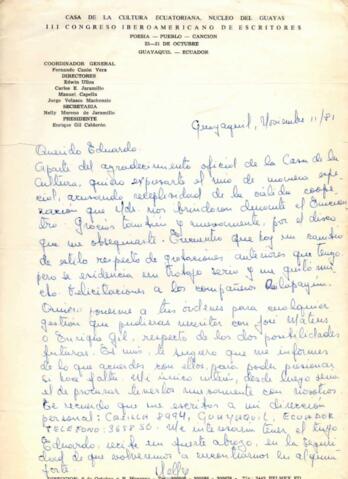 CASA DE LA CULTURA ECUATORIANA, NUCLEO DEL GUAYAS
III CONGRESO IBEROAMERICANO DE ESCRITORES
POESIA — PUEBLO — CANCION
25—31 DE OCTUBRE
GUAYAQUIL — ECUADOR
COORDINADOR GENERAL
Fernando Cazón Vera
DIRECTORES
Edwin Ulloa
Carlos E. Jaramillo
Manuel Capella
Jorge Velasco Mackenzie
SECRETARIA
Nelly Moreno de Jaramillo
PRESIDENTE
Enrique Gil Calderón
Guayaquil, Noviembre 11/81
Querido Eduardo:
Aparte del agradecimiento oficial de la Casa de la
Cultura, quiero expresarte el mío de manera espe-
cial, acusando la cálida coope-
ración que Uds. nos brindaron durante el Encuen-
tro. Gracias también y nuevamente, por el disco
que me obsequiaste. Encuentro que hay un cambio
de estilo respecto de grabaciones anteriores que tengo,
pero se evidencia un trabajo serio y un
Felicitaciones a los compañeros
Quiero ponerme a tus órdenes para cualquier
gestión que pudieras necesitar con José
o Enrique Gil, respecto de las dos posibilidades
futuras. Es más, te sugiero que me informes
de lo que acuerdes con ellos, para poder presionar
si hace falta. Mi único interés, desde luego será
el de procurar tenerlos nuevamente con nosotros.
Te recuerdo que me escribas a mi dirección
personal: CASILLA 8994, GUAYAQUIL, ECUADOR
TELÉFONO: 365830. Me interesaría tener el tuyo
Eduardo, recibe un fuerte abrazo, en la seguri-
dad de que volveremos a encontrarnos en alguna
parte.